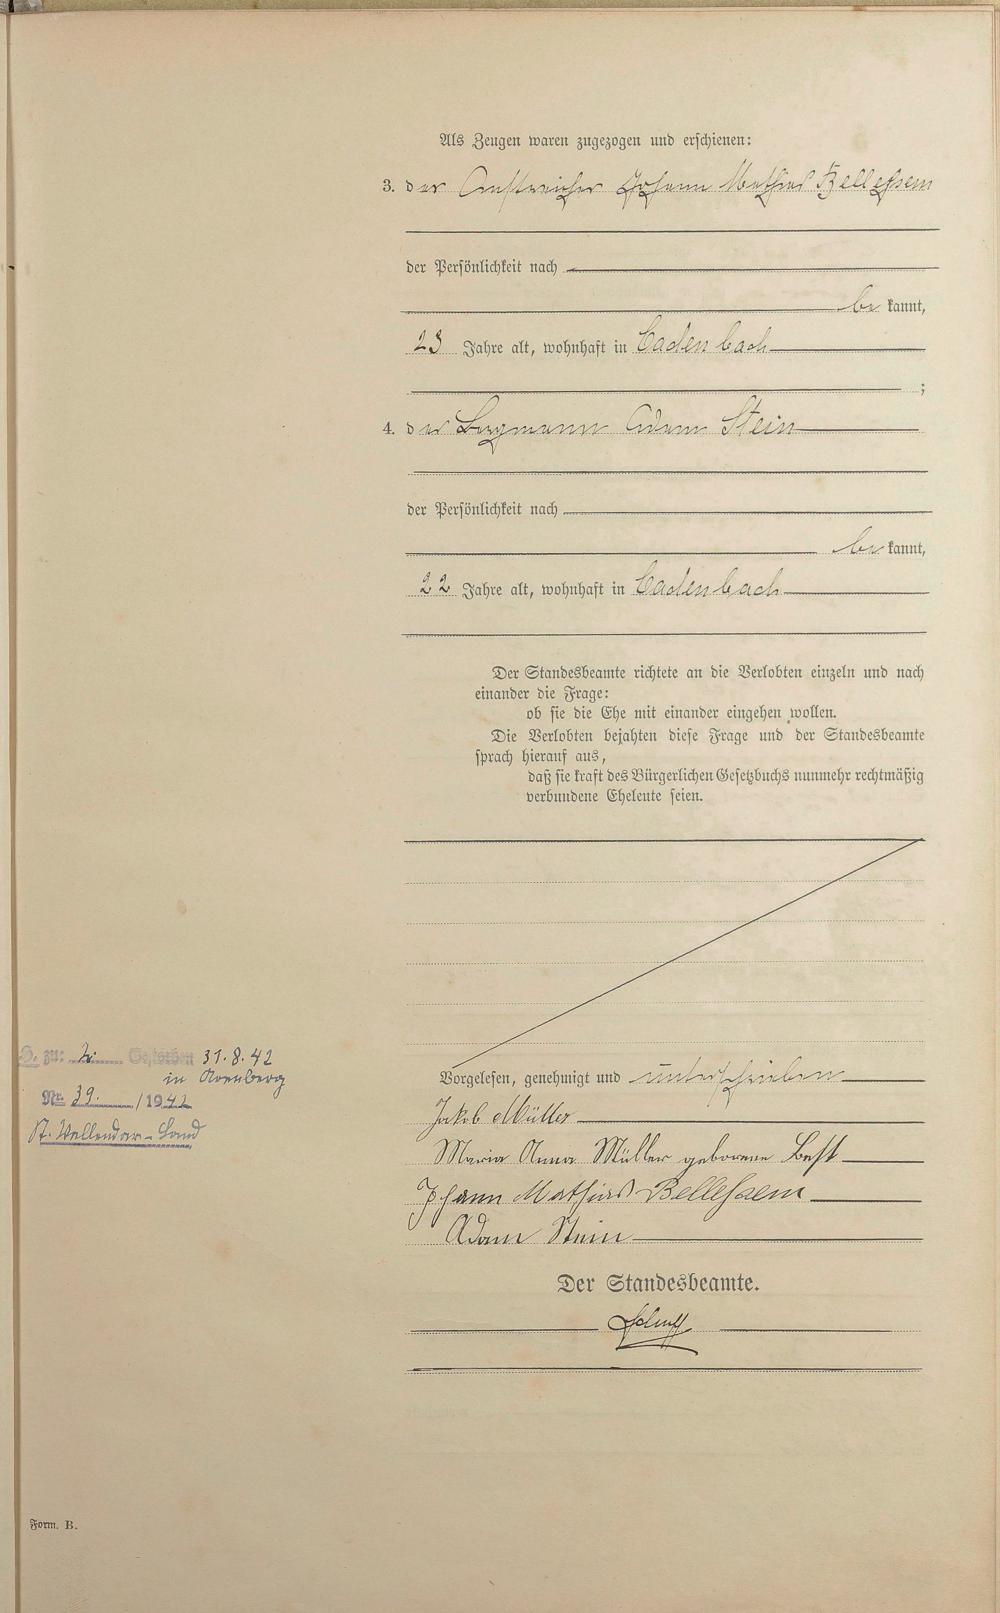 Als Zeugen waren zugezogen und erschienen:
3. der Anstreicher Johann Mathias Bellessem
der Persönlichkeit nach
be kannt,
23 Jahre alt, wohnhaft in Cadenbach
;
4. der Bergmann Adam Stein
der Persönlichkeit nach
be kannt,
22 Jahre alt, wohnhaft in Cadenbach
Der Standesbeamte richtete an die Verlobten einzeln und nach
einander die Frage:
ob sie die Ehe mit einander eingehen wollen.
Die Verlobten bejahten diese Frage und der Standesbeamte
sprach hierauf aus,
daß sie kraft des Bürgerlichen Gesetzbuchs nunmehr rechtmäßig
verbundene Eheleute seien.
Vorgelesen, genehmigt und unterschrieben
Jakob Müller
Maria Anna Müller geborene Best
Johann Mathias Bellessem
Adam Stein
Der Standesbeamte.
zu: 2. Gestorben 31.8.42
in Arenberg
Nr. 39. /1942
St. Vallendar-Land
Form. B.